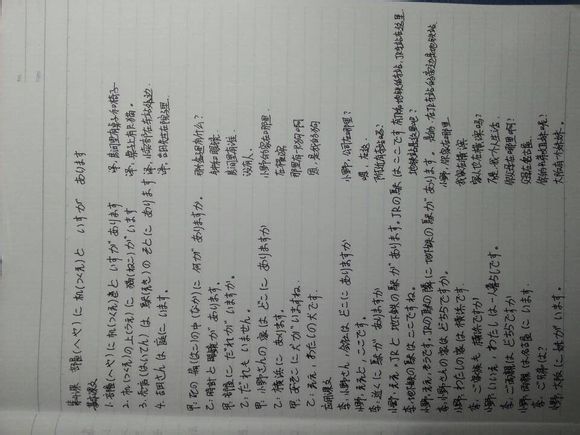 第4课 部屋(へや)に 机(つくえ)と いすが あります
基本课文
1. 部屋(へや)に 机(つくえ)と いすが あります 译: 房间里有桌子和椅子
2. 机(つくえ)の上(うえ)に 猫(ねこ)が います 译: 桌子上有只猫。
3. 売店(ばいてん)は 駅(えき)の そとに あります 译: 小卖部在车站外边.
4. 吉田さんは 庭に います。 译: 吉田先生在院子里.
甲: その 箱(はこ)の 中(なか)に 何が ありますか。 那个盒子里有什么?
乙: 時計と 眼鏡が あります。 手表和眼镜.
甲: 部屋に だれが いますか。 房间里有谁
乙: だれも いません。 没有人
甲: 小野さんの 家は どこに ありますか 小野的家在哪里
乙: 横浜に あります。 在横滨
甲: あそこに 犬が いますね。 那里有一只狗啊
乙: ええ、わたしの 犬です。 恩,是我的狗
应用课文
李: 小野さん, 会社は どこに ありますか 小野,公司在哪里?
小野: ええと、ここです。 嗯 在这.
李: 近くに 駅が ありますか 附近有车站吗?
小野: ええ。JRと 地下鉄の 駅が あります。JRの駅は ここです
李: 地下鉄の駅は ここですね。 地铁站是这里吧?
小野: ええ,そうです。JRの駅の 隣に 地下鉄の 駅が あります。
李: 小野さんの 家は どちらですか。 小野,你家在哪里
小野: わたしの 家は 横浜です。 我家在横滨
李: ご家族も 横浜ですか 家人也在横滨吗?
小野: いいえ、わたしは 一人暮らしです。 不是,我一个人生活.
李: ご両親は どちらですか
小野: 両親は 名古屋に います. 父母在名古屋.
李: ご兄弟は?
小野: 大阪に 妹が います。 大阪有个妹妹.